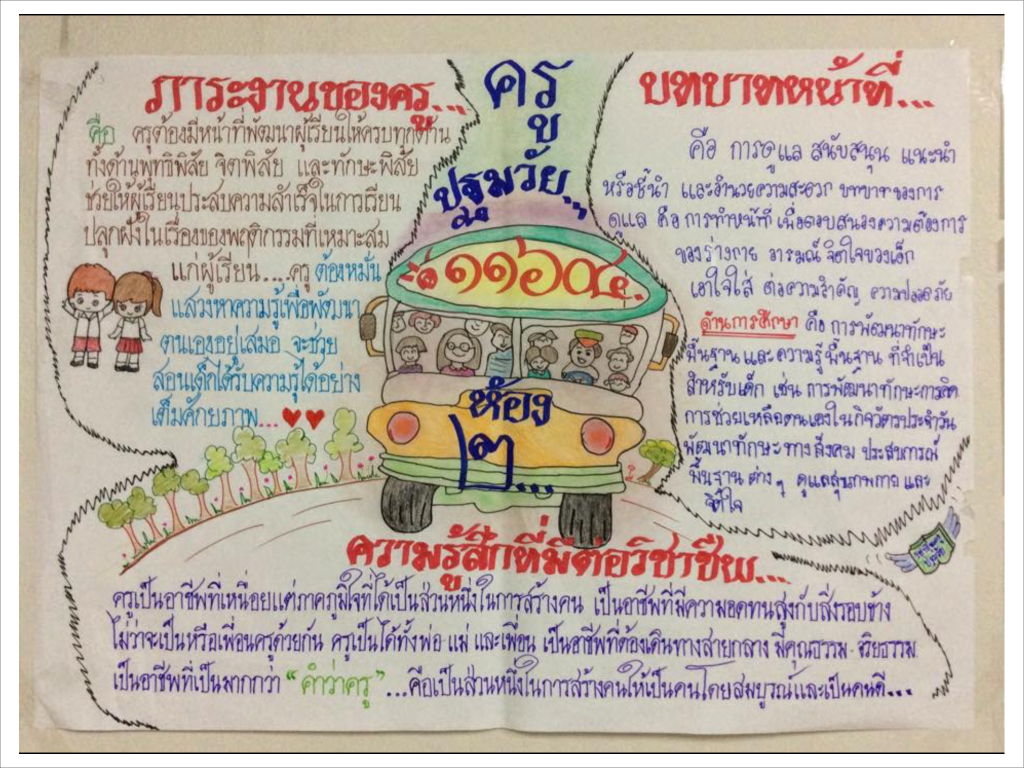 ครู
ปฐมวัย...
๑๑๖๐๔
ห้อง
๒...
ภาระงานของครู...
คือ ครูต้องมีหน้าที่พัฒนาผู้เรียนให้ครบทุกด้าน
ทั้งด้านพุทธิพิสัย จิตพิสัย และทักษะพิสัย
ช่วยให้ผู้เรียนประสบความสำเร็จในการเรียน
ปลุกฝังในเรื่องของพฤติกรรมที่เหมาะสม
แก่ผู้เรียน....ครู ต้องหมั่น
แสวงหาความรู้เพื่อพัฒนา
ตนเองอยู่เสมอ จะช่วย
สอนเด็กได้รับความรู้ได้อย่าง
เต็มศักยภาพ...
บทบาทหน้าที่...
คือ การดูแล สนับสนุน แนะนำ
หรือชี้นำ และอำนวยความสะดวก บทบาทของการ
ดูแล คือ การทำหน้าที่ เพื่อตอบสนองความต้องการ
ของร่างกาย อารมณ์ จิตใจของเด็ก
เอาใจใส่ ต่อความสำคัญ ความปลอดภัย
ด้านการศึกษา คือ การพัฒนาทักษะ
พื้นฐาน และ ความรู้ พื้นฐาน ที่จำเป็น
สำหรับเด็ก เช่น การพัฒนาทักษะการคิด
การช่วยเหลือตนเองในกิจวัตรประจำวัน
พัฒนาทักษะทางสังคม ประสบการณ์
พื้นฐาน ต่าง ๆ ดูแลสุขภาพกาย และ
จิตใจ
ความรู้สึกที่มีต่อวิชาชีพ...
ครูเป็นอาชีพที่เหนื่อยแต่ภาคภูมิใจที่ได้เป็นส่วนหนึ่งในการสร้างคน เป็นอาชีพที่มีความอดทนสูงกับสิ่งรอบข้าง
ไม่ว่าจะเป็นหรือเพื่อนครูด้วยกัน ครูเป็นได้ทั้งพ่อ-แม่ และเพื่อน เป็นอาชีพที่ต้องเดินทางสายกลาง มีคุณธรรม-จริยธรรม
เป็นอาชีพที่เป็นมากกว่า "คำว่าครู"...คือเป็นส่วนหนึ่งในการสร้างคนให้เป็นคนโดยสมบูรณ์และเป็นคนดี...